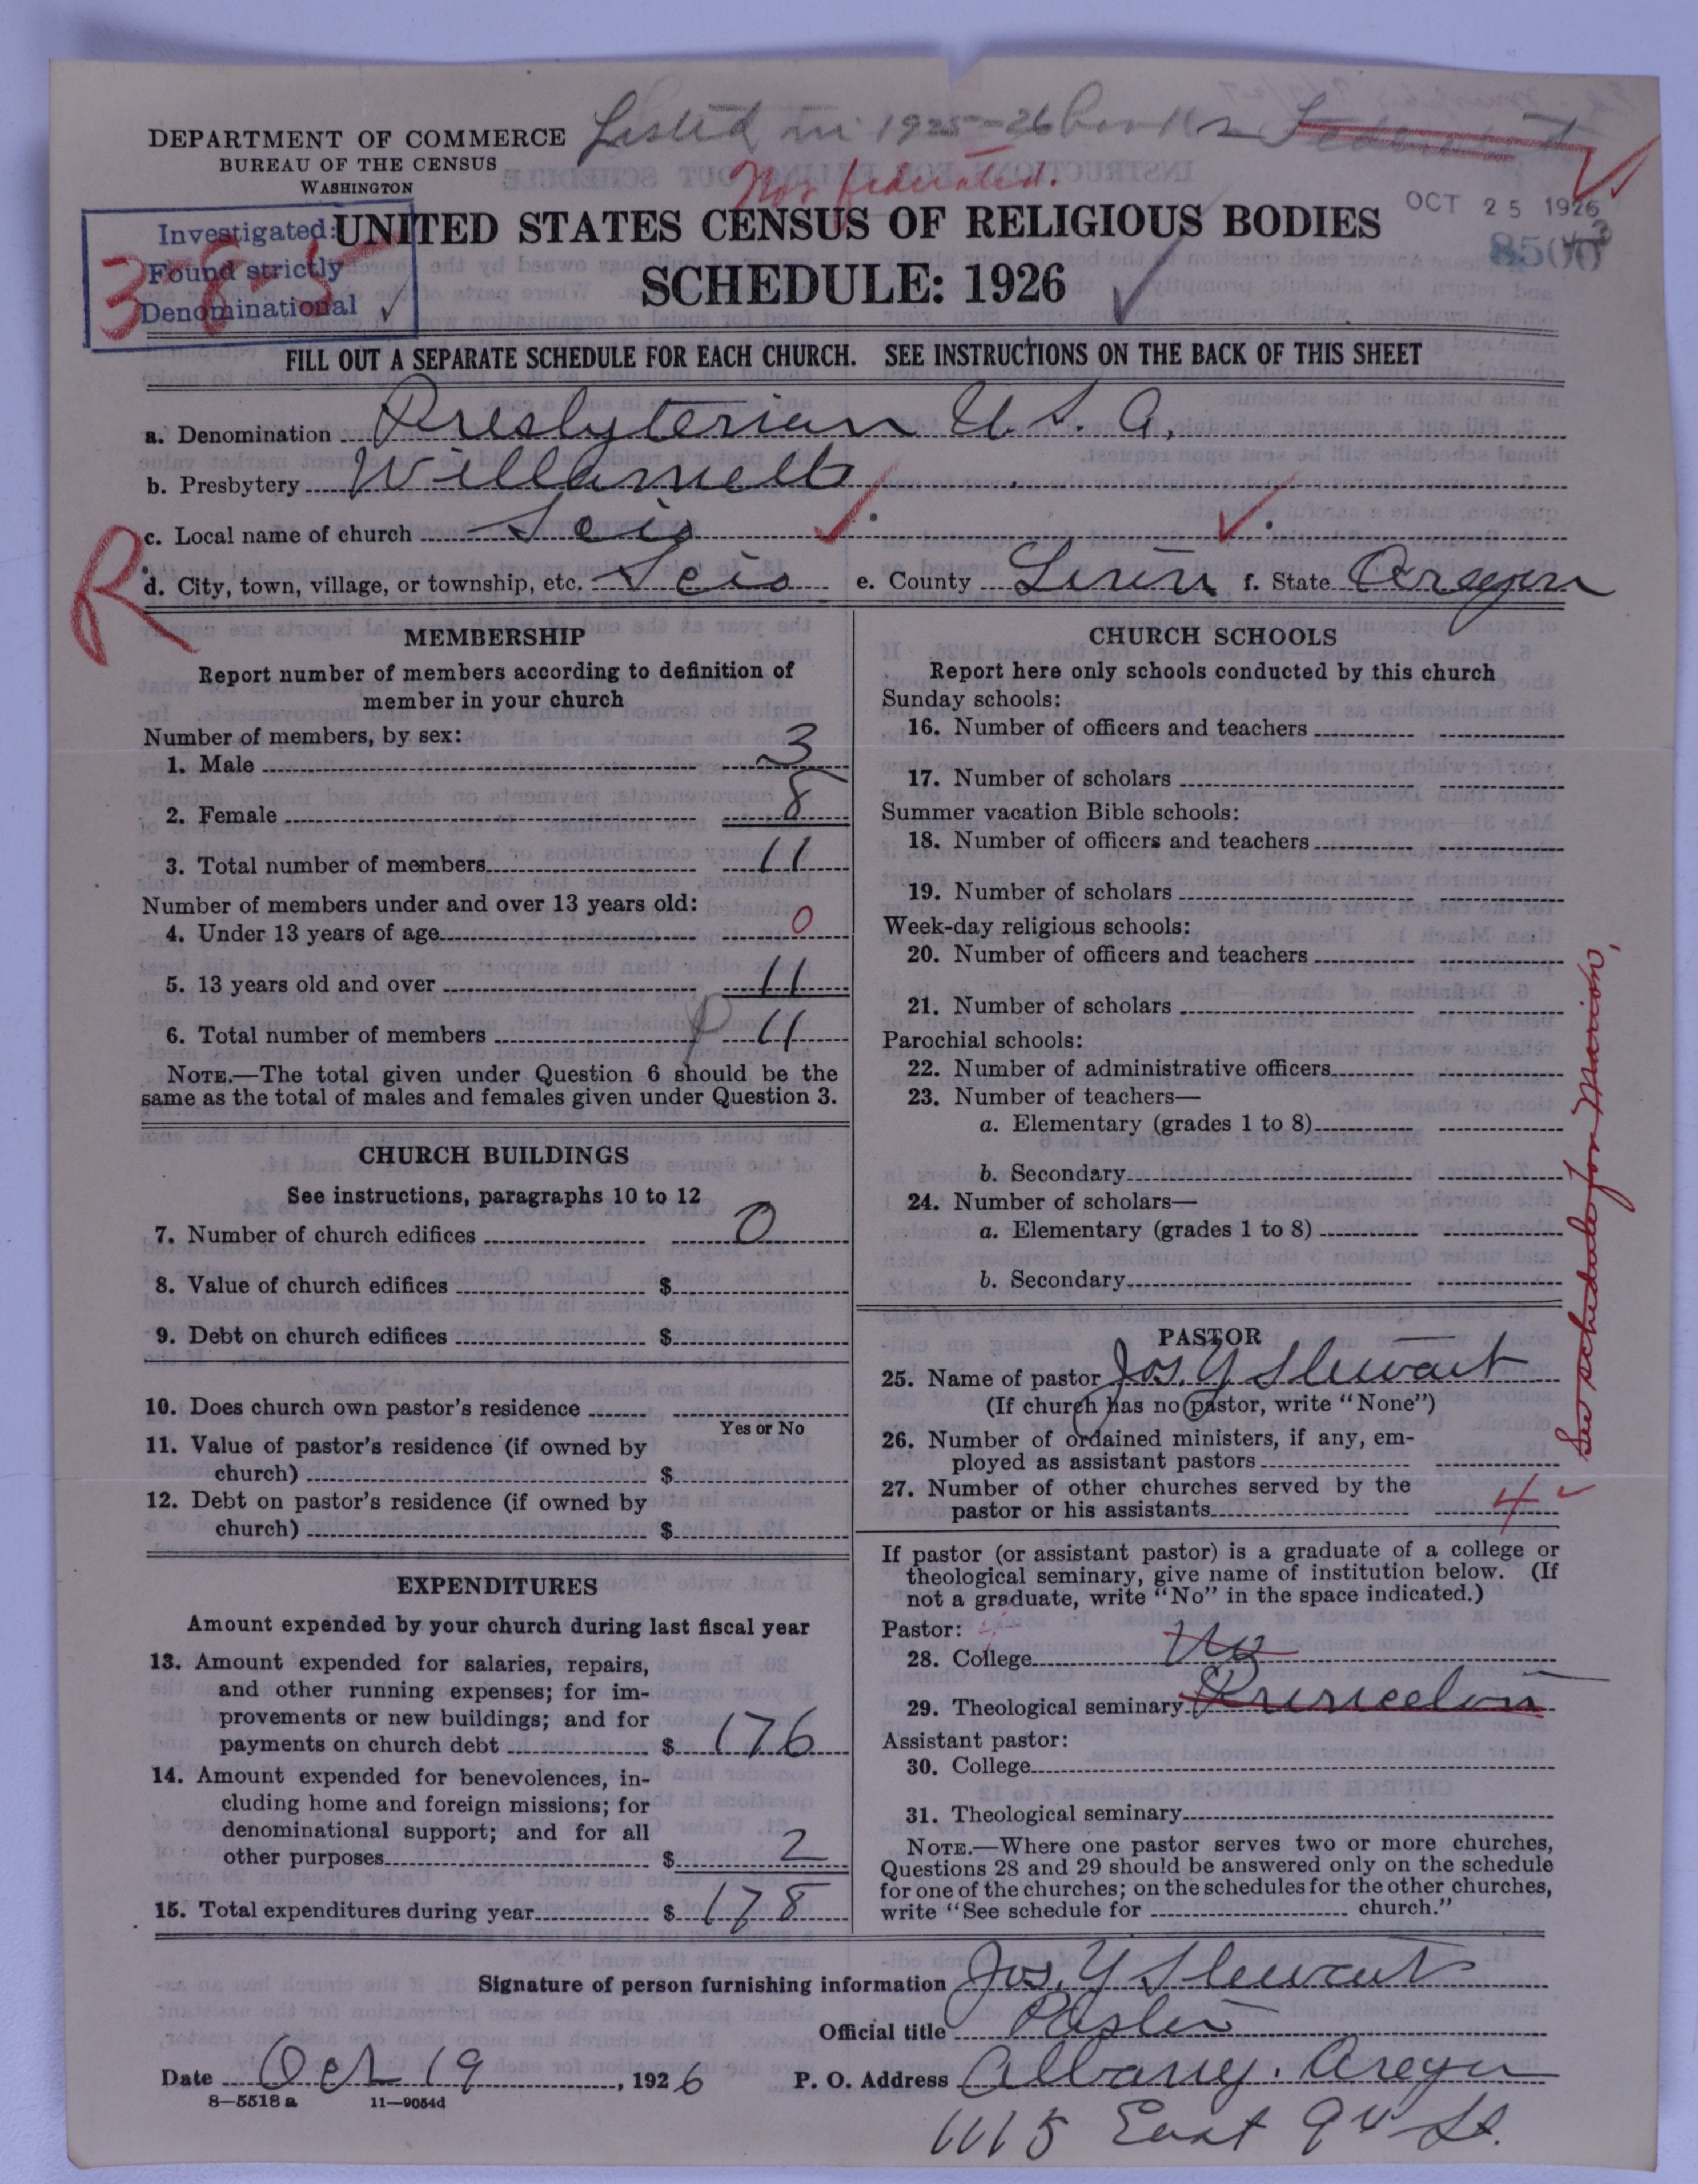 Listed in 1925-26 books Federated
Not federated.
DEPARTMENT OF COMMERCE
BUREAU OF THE CENSUS
WASHINGTON
OCT 25 1926
Investigated:
Found strictly
Denominational
3-8-5
UNITED STATES CENSUS OF RELIGIOUS BODIES
SCHEDULE: 1926
FILL OUT A SEPARATE SCHEDULE FOR EACH CHURCH. SEE INSTRUCTIONS ON THE BACK OF THIS SHEET
a. Denomination Presbyterian U. S. A.
b. Presbytery Willamette
c. Local name of church Scio
R
d. City, town, village, or township, etc. Scio e. County Linn f. State Oregon
MEMBERSHIP
Report number of members according to definition of
member in your church
Number of members, by sex:
1. Male 3
2. Female 8
3. Total number of members 11
Number of members under and over 13 years old:
4. Under 13 years of age 0
5. 13 years old and over 11
6. Total number of members 11
NOTE.—The total given under Question 6 should be the
same as the total of males and females given under Question 3.
CHURCH BUILDINGS
See instructions, paragraphs 10 to 12
7. Number of church edifices 0
8. Value of church edifices $
9. Debt on church edifices $
10. Does church own pastor's residence
Yes or No
11. Value of pastor's residence (if owned by
church) $
12. Debt on pastor's residence (if owned by
church) $
EXPENDITURES
Amount expended by your church during last fiscal year
13. Amount expended for salaries, repairs,
and other running expenses; for im-
provements or new buildings; and for
payments on church debt $ 176
14. Amount expended for benevolences, in-
cluding home and foreign missions; for
denominational support; and for all
other purposes $ 2
15. Total expenditures during year $ 178
CHURCH SCHOOLS
Report here only schools conducted by this church
Sunday schools:
16. Number of officers and teachers
17. Number of scholars
Summer vacation Bible schools:
18. Number of officers and teachers
19. Number of scholars
Week-day religious schools:
20. Number of officers and teachers
21. Number of scholars
Parochial schools:
22. Number of administrative officers
23. Number of teachers—
a. Elementary (grades 1 to 8)
b. Secondary
24. Number of scholars—
a. Elementary (grades 1 to 8)
b. Secondary
PASTOR
25. Name of pastor Jos. Y Stewart
(If church has no pastor, write "None")
26. Number of ordained ministers, if any, em-
ployed as assistant pastors
27. Number of other churches served by the
pastor or his assistants 4
If pastor (or assistant pastor) is a graduate of a college or
theological seminary, give name of institution below. (If
not a graduate, write "No" in the space indicated.)
Pastor:
28. College No
29. Theological seminary Princeton
Assistant pastor:
30. College
31. Theological seminary
NOTE.—Where one pastor serves two or more churches,
Questions 28 and 29 should be answered only on the schedule
for one of the churches; on the schedules for the other churches,
write "See schedule for church."
See schedule for Marion,
Signature of person furnishing information Jos. Y Stewart
Official title Pastor
Date Oct 19, 1926 P. O. Address Albany. Oregon
8—5518 a 11—9054d
1115 East 9th St.